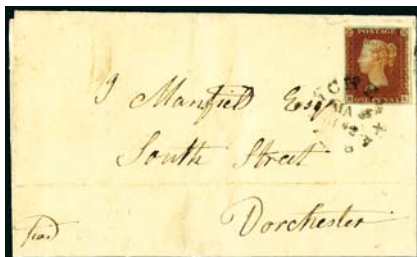 POSTAGE
ONE PENNY
J Manfield Esqr
South Street
Dorchester
Paid